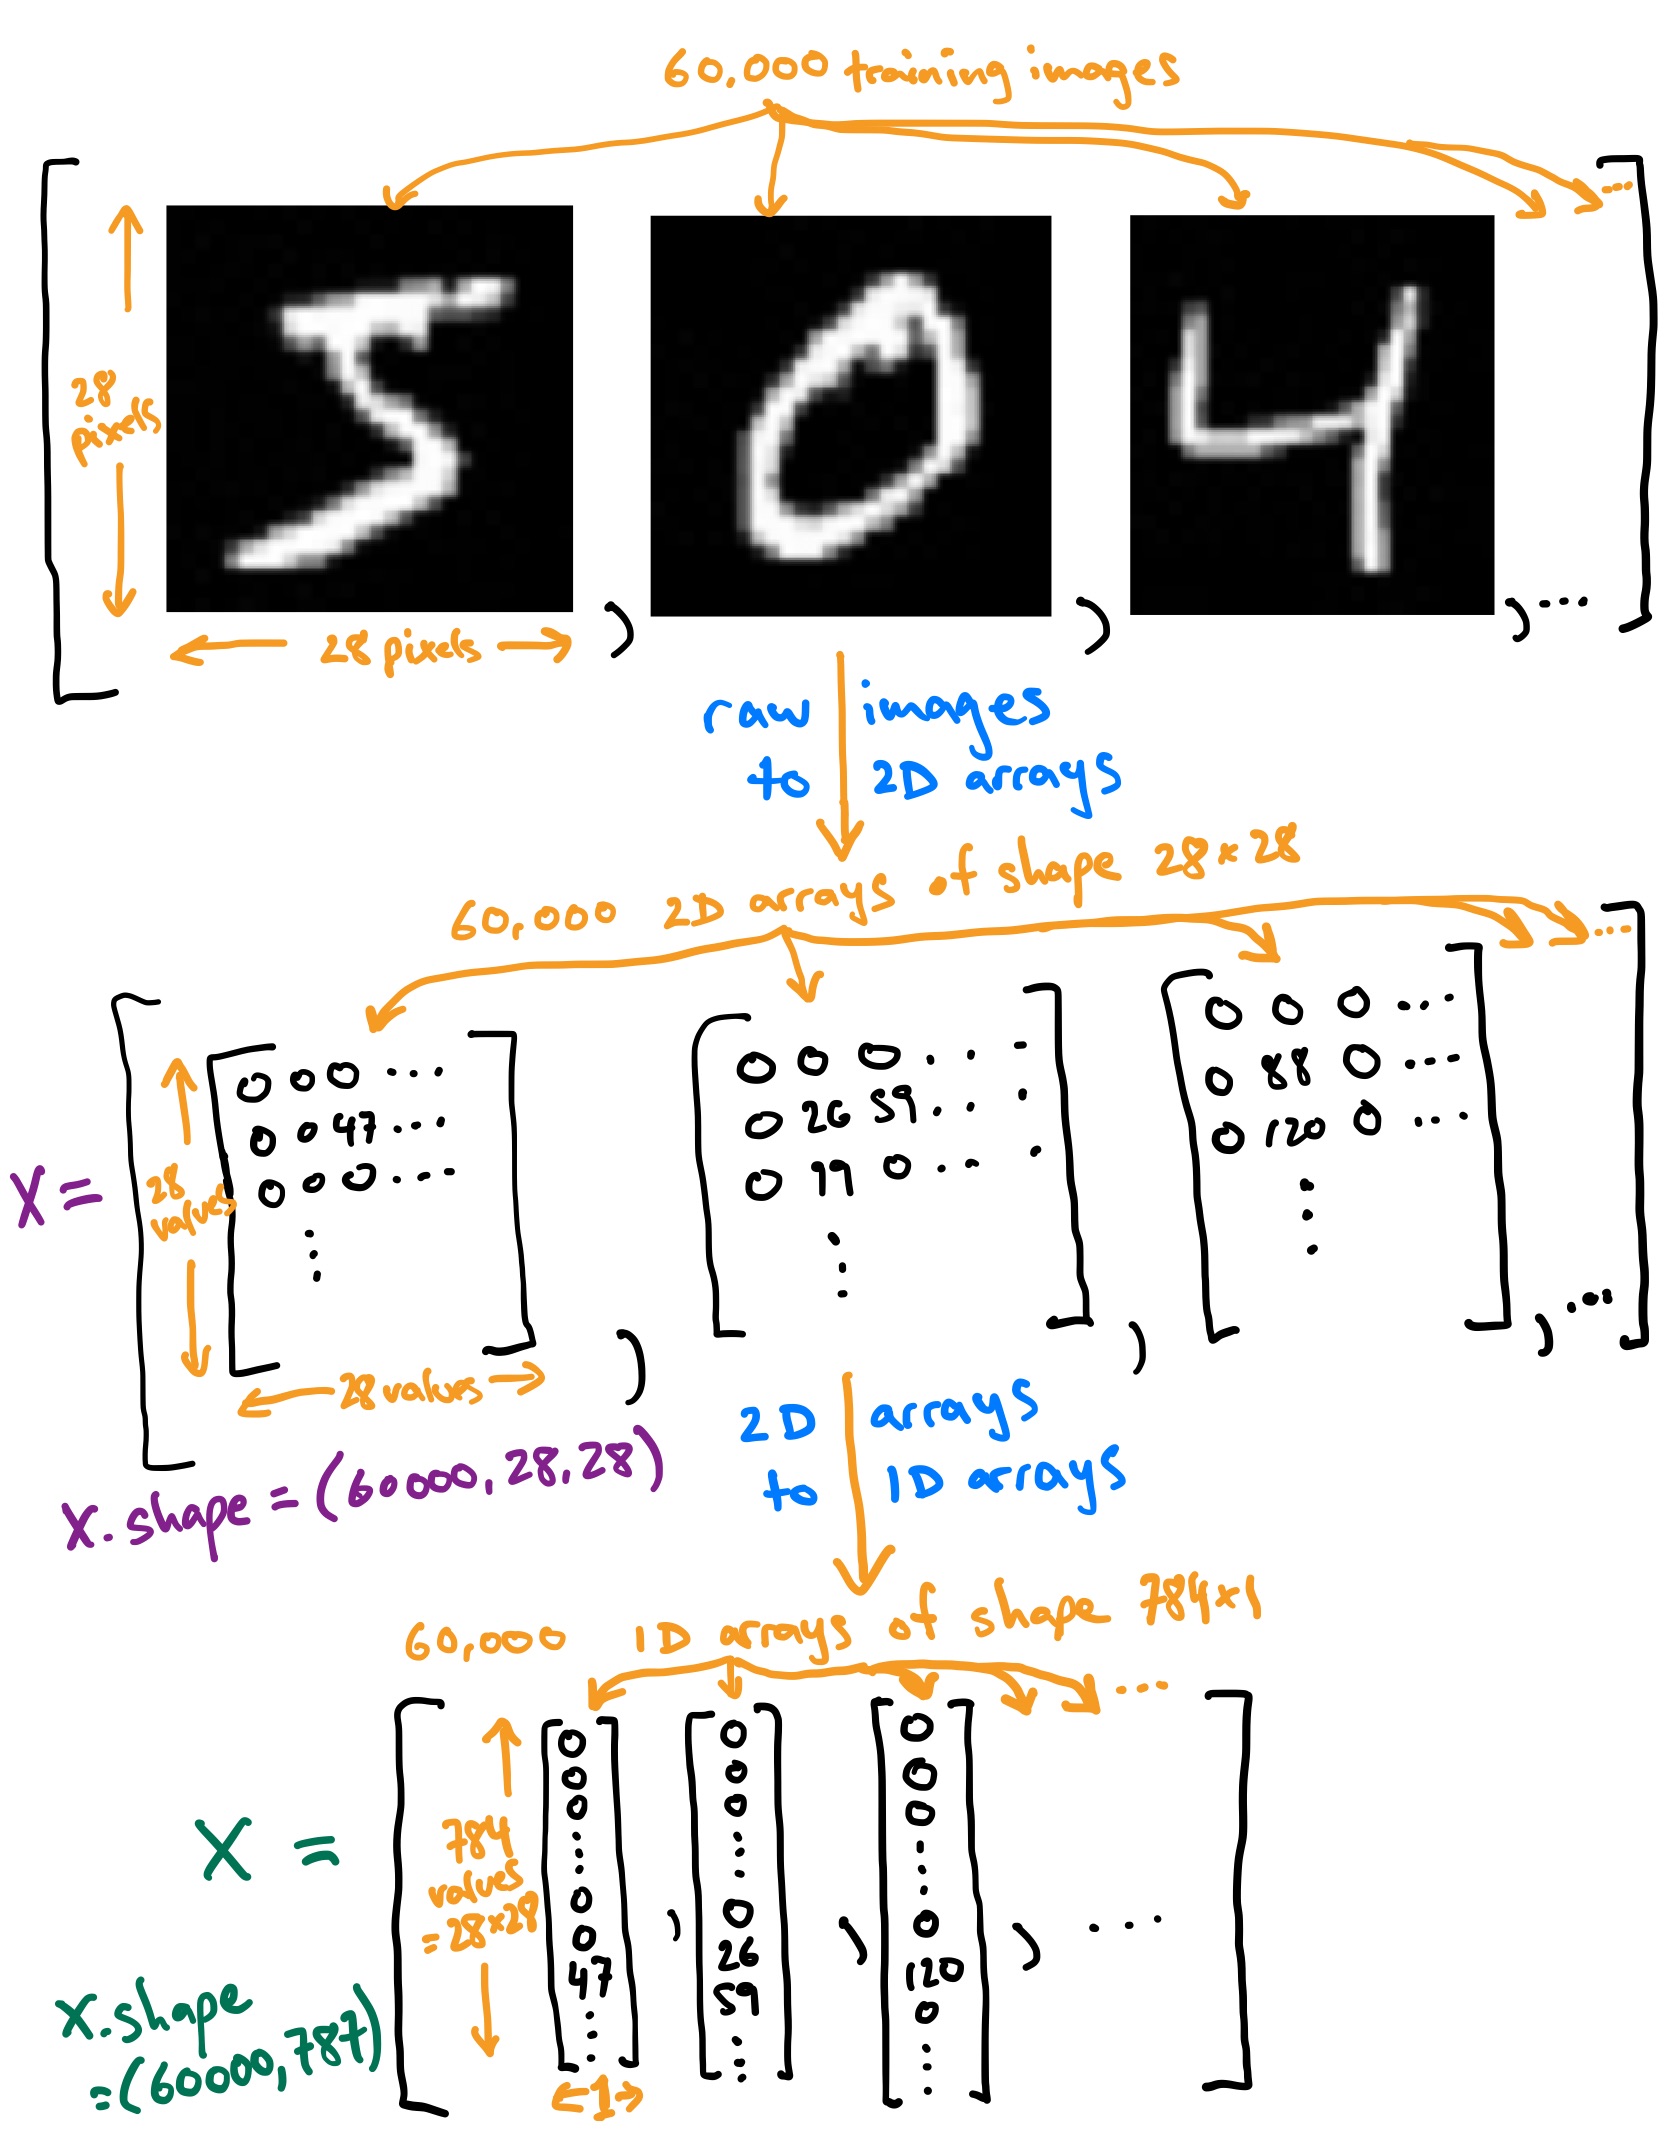 60,000 training images
...
28
pixels
28 pixels
, , , ...
raw images
to 2D arrays
60,000 2D arrays of shape 28×28
...
X =
28
values
0 0 0 ...
0 0 47 ...
0 0 0 ...
⋮
,
0 0 0 . . .
0 26 59 . . .
0 99 0 . . .
⋮
,
0 0 0 ...
0 88 0 ...
0 120 0 ...
⋮
, ...
28 values
X.shape = (60000, 28, 28)
2D arrays
to 1D arrays
60,000 1D arrays of shape 784×1
...
X =
784
values
= 28×28
0
0
0
⋮
0
0
47
⋮
,
0
0
0
⋮
0
26
59
⋮
,
0
0
0
⋮
0
120
0
⋮
, ...
1
X.shape
= (60000, 787)